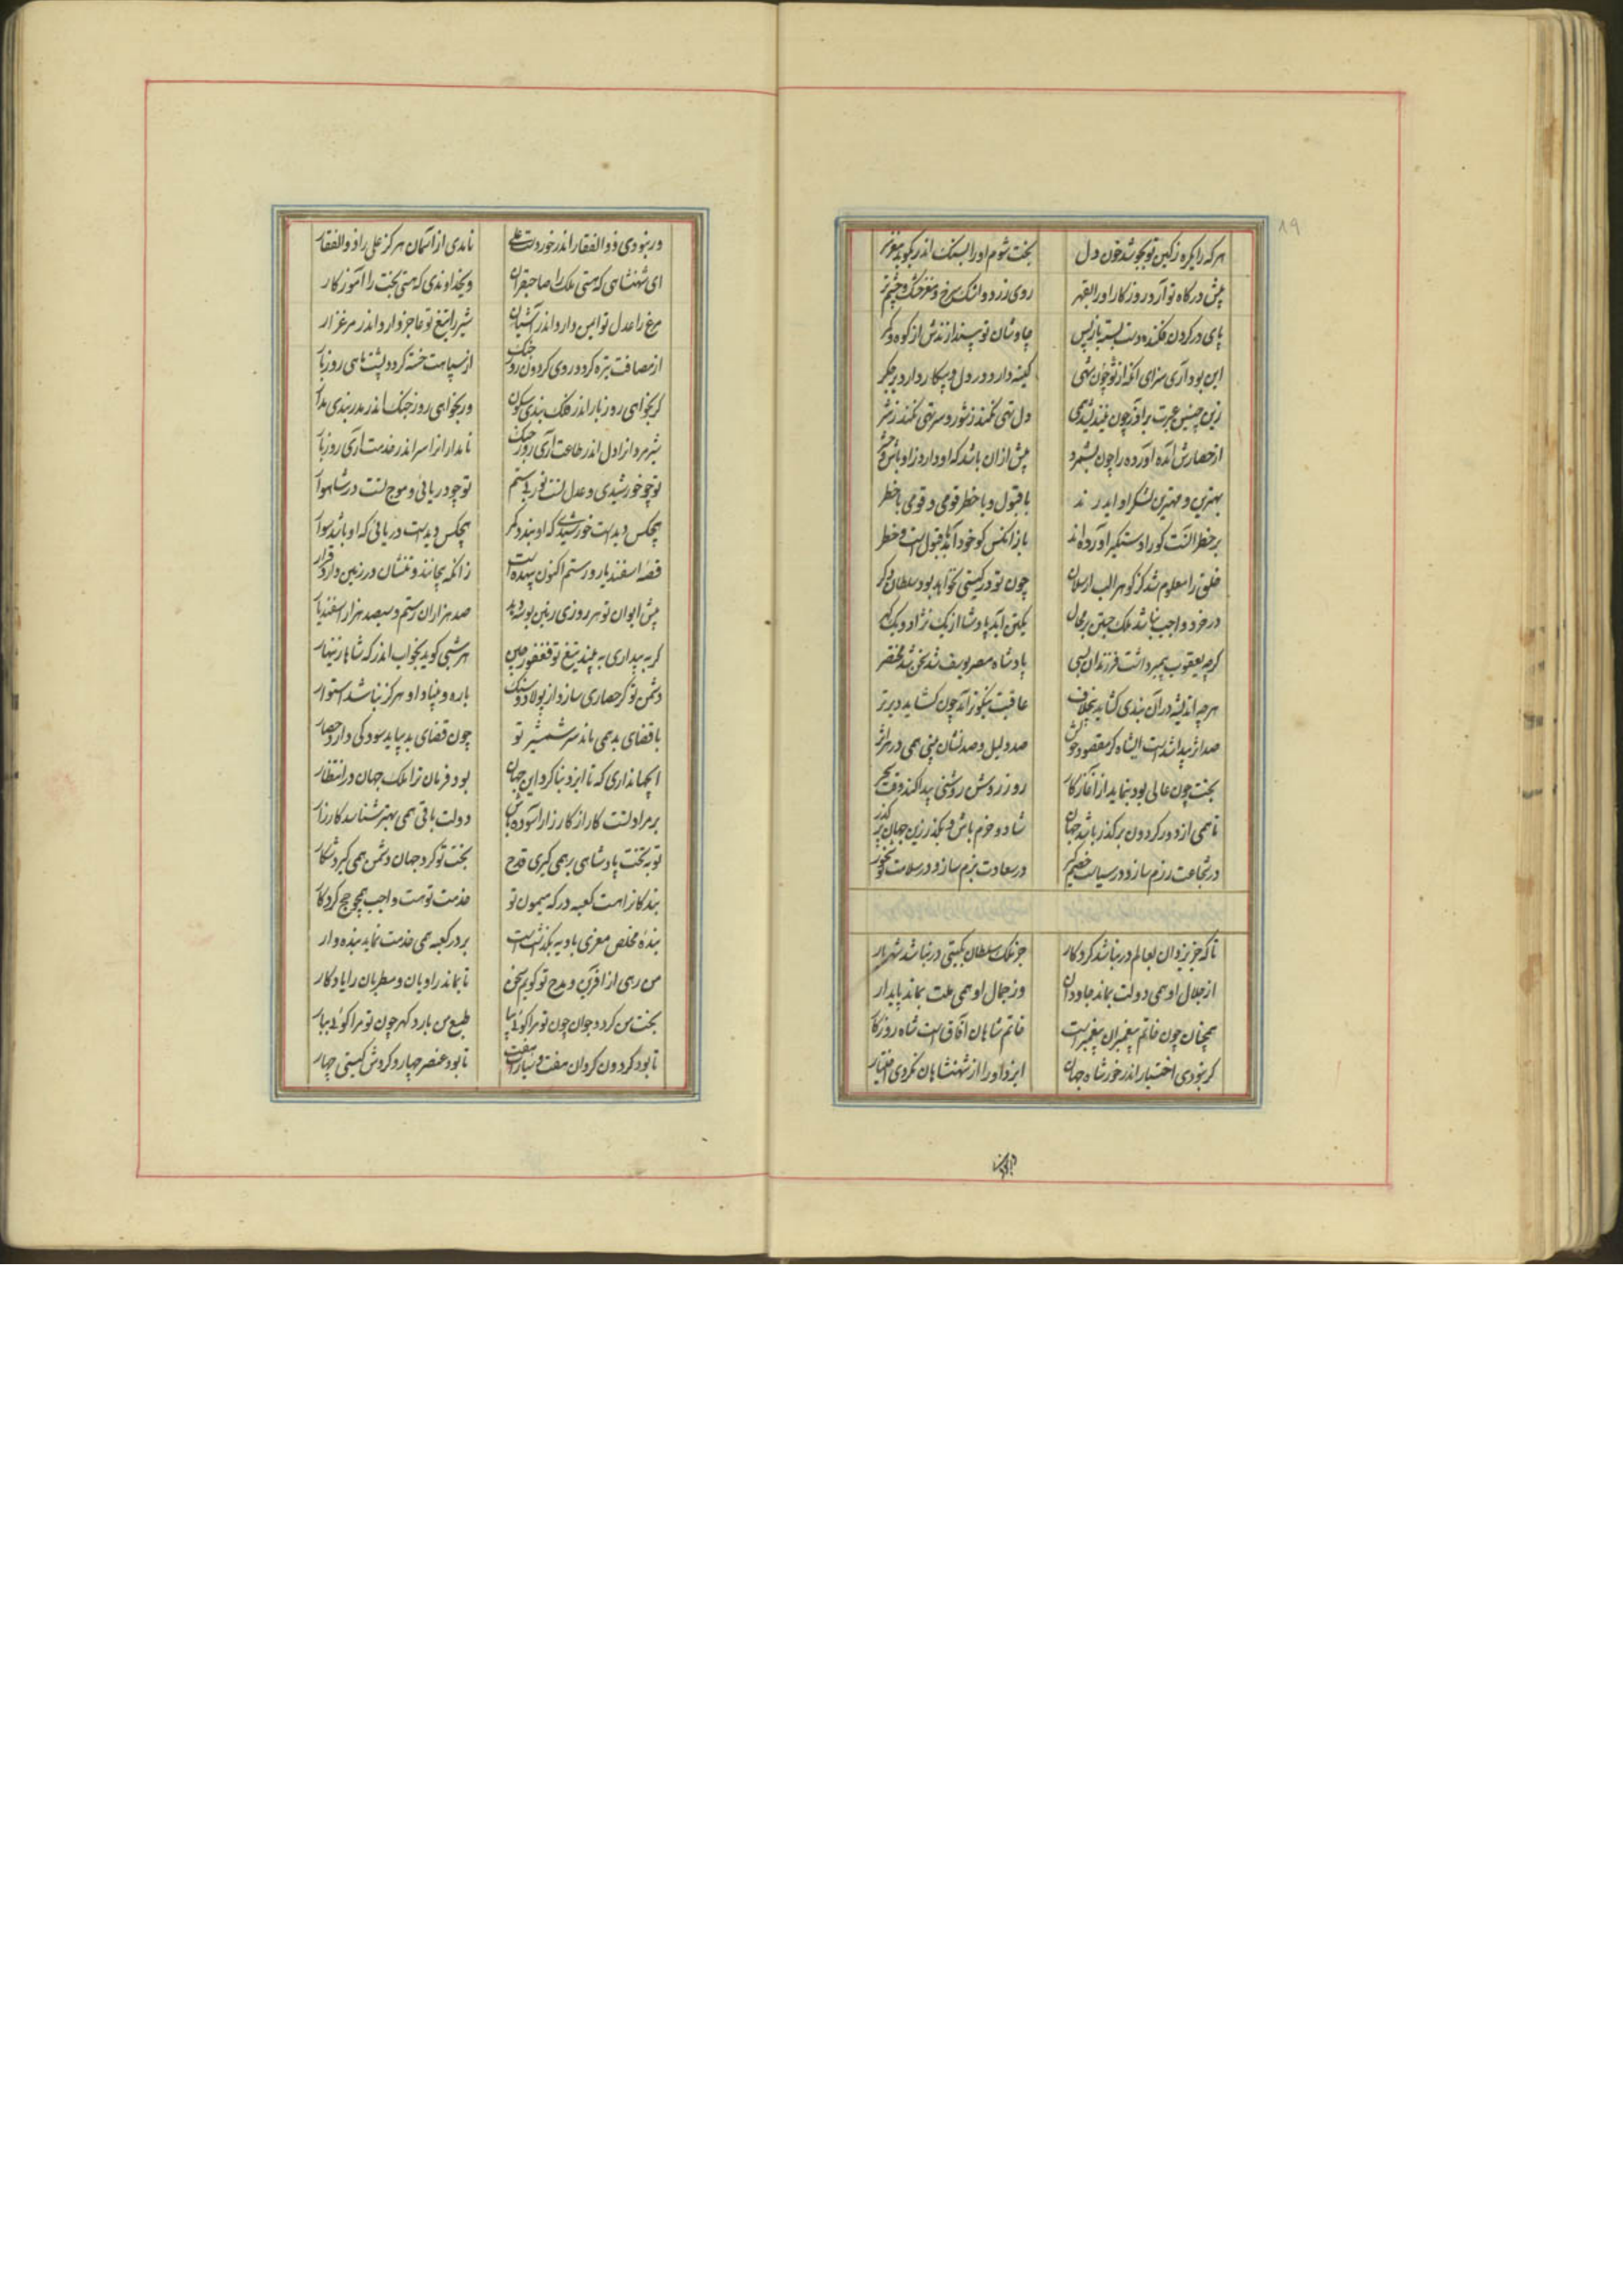 هر که را یکره ز کین تو بجوشد خون دل بخت شوم او را بسنگ اندر بکوبد مغز سر
پیش درگاه تو آرد روزگار او را بقهر روی زرد و اشک سرخ و مغز خشک و چشم تر
پای در گردن فکنده دست بسته باز پس چاوشان تو بیندازندش از کوه و کمر
این بود آری سزای آنکه از تو چون شهی کینه دارد در دل و پیکار دارد در جگر
زین چنین عبرت برادر چون نیندیشد همی دل تهی نکند ز شور و سر تهی نکند ز شر
از حصارش آمده آورده را چون بشمرد بیش از آن باشد که او دارد ز اوباش و حشر
بهترین و مهترین لشکر او ایدرند با قبول و با خطر قومی و قومی با خطر
بر خطر آنست کو را دستگیر آورده‌اند باز آنکس کو خود آمد با قبول است و خطر
خلق را معلوم شد کز گوهر الب ارسلان چون تو در گیتی نخواهد بود سلطان دگر
در خرد واجب نباشد ملک جستن بر محال یکتن آید پادشا از یک نژاد و یک گهر
گرچه یعقوب پیمبر داشت فرزندان بسی پادشاه مصر یوسف شد سخن شد مختصر
هرچه اندیشه در آن بندی گشاید بخلاف عاقبت نیکوتر آید چون گشاید دیرتر
صد اثر پیدا شد است ای شاه کز مقصود خویش صد دلیل و صد نشان بینی همی در هر اثر
بخت چون عالی بود بنماید از آغاز کار روز روشن روشنی پیدا کند وقت سحر
تا همی از دور گردون بر گذر باشد جهان شاد و خرم باش و مگذر زین جهان بر گذر
در شجاعت رزم ساز و در سیاست خصم گیر در سعادت بزم ساز و در سلامت می بخور
تا که جز یزدان بعالم در نباشد کردگار جز ملک سلطان بگیتی در نباشد شهریار
از جلال او همی دولت بماند جاودان وز جمال او همی ملت بماند پایدار
همچنان چون خاتم پیغمبران پیغمبر است خاتم شاهان آفاق است شاه روزگار
گر نبودی اختیار اندر خور شاه جهان ایزد او را از شهنشاهان نکردی اختیار
ور نبودی ذوالفقار اندر خور دست علی نامدی از آسمان هرگز علی را ذوالفقار
ای شهنشاهی که هستی ملک را صاحبقران ویخداوندی که هستی بخت را آموزگار
مرغ را عدل تو ایمن دارد اندر آشیان شیر را تیغ تو عاجز دارد اندر مرغزار
از مصافت تیره گردد روی گردون روز جنگ از سپاهت خسته گردد پشت ماهی روز بار
گر بخواهی روز بار اندر فلک بندی سکون ور بخواهی روز جنگ اندر مدر بندی مدار
شیرمردانرا دل اندر طاعت آری روز جنگ نامدارانرا سر اندر خدمت آری روز بار
تو چو خورشیدی و عدل تست نور بی ستم تو چو دریائی و موج تست در شاهوار
هیچکس دیدست خورشیدی که او بندد کمر هیچکس دیدست دریائی که او باشد سوار
قصه اسفندیار و رستم اکنون بیهده است زانکه بیجانند و تنشان در زمین دارد قرار
پیش ایوان تو هر روزی زمین بوسد همی صد هزاران رستم و سیصد هزار اسفندیار
گر به بیداری به بیند تیغ تو فغفور چین هر شبی گوید بخواب اندر که شاها زینهار
دشمن تو گر حصاری سازد از پولاد و سنگ باره و بنیاد او هرگز نباشد استوار
با قضای بد همی ماند سر شمشیر تو چون قضای بد بیاید سود کی دارد حصار
ای جهانداری که تا ایزد بنا کرد این جهان بود فرمان ترا ملک جهان در انتظار
بر مراد تست کار از کارزار آسوده باش دولت باقی همی بهتر شناسد کارزار
تو به تخت پادشاهی بر همی گیری قدح بخت تو گرد جهان دشمن همی گیرد شکار
بندگانرا هست کعبه درگه میمون تو خدمت تو هست واجب همچو حج کردگار
بندهٔ مخلص معزی بادیه بگذاشتست بر در کعبه همی خدمت نماید بنده وار
من رهی از آفرین و مدح تو گویم سخن تا بماند راویان و مطربان را یادگار
بخت من گردد جوان چون تو مرا گوئی بیا طبع من بارد گهر چون تو مرا گوئی بیار
تا بود گردون گردان هفت و سیارات هفت تا بود عنصر چهار و گردش گیتی چهار